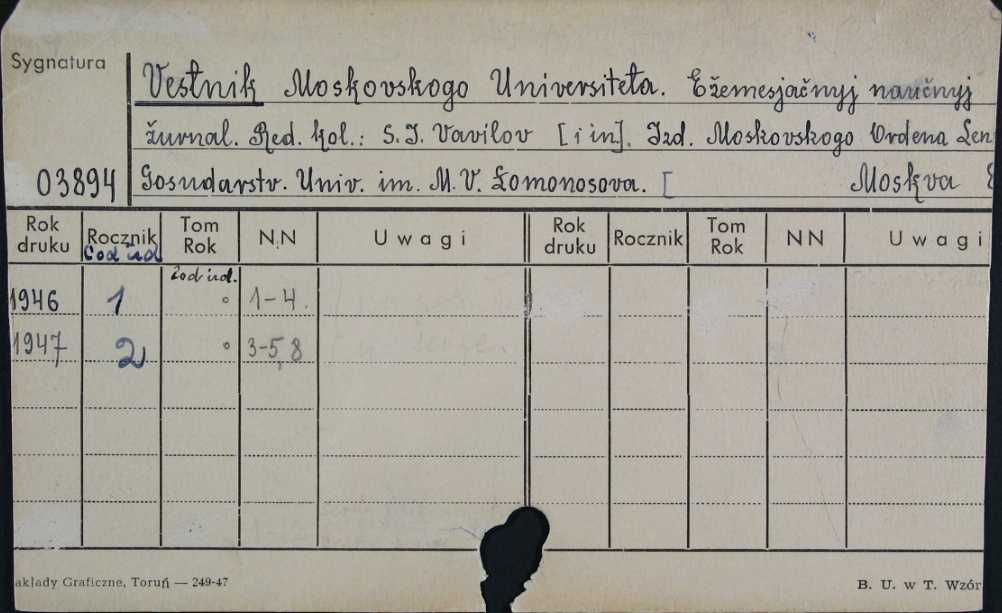 Sygnatura
Vestnik Moskovskogo Universiteta. Ežemesjačnyj naučnyj
žurnal. Red. kol.: S. I. Vavilov [i in]. Izd. Moskovskogo Ordena Len
03894 Gosudarstv. Univ. im. M. V. Lomonosova. [ Moskva
Rok druku Rocznik Tom Rok NN Uwagi Rok druku Rocznik Tom Rok NN Uwagi
1946 1 ° 1-4.
1947 2 ° 3-5,8
akłady Graficzne, Toruń — 249-47 B. U. w T. Wzór